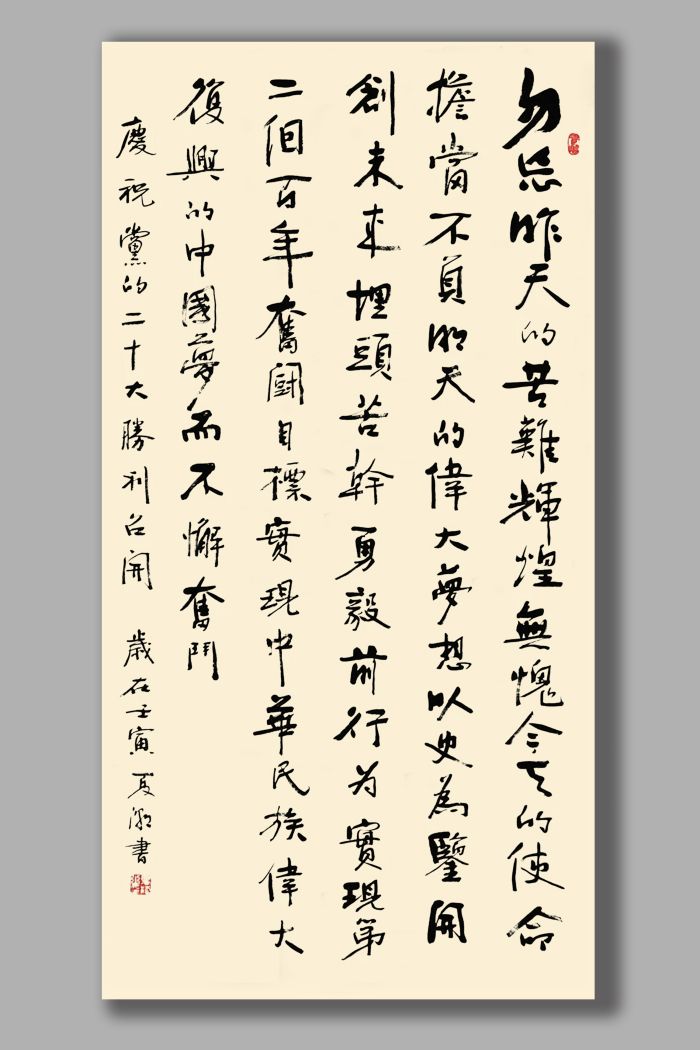 勿忘昨天的苦難輝煌無愧今天的使命
擔當不負明天的偉大夢想以史為鑒開
創未來埋頭苦幹勇毅前行为實現第
二個百年奮鬭目標實現中華民族偉大
復興的中國夢而不懈奮鬥
慶祝黨的二十大勝利召開 歲在壬寅 夏書